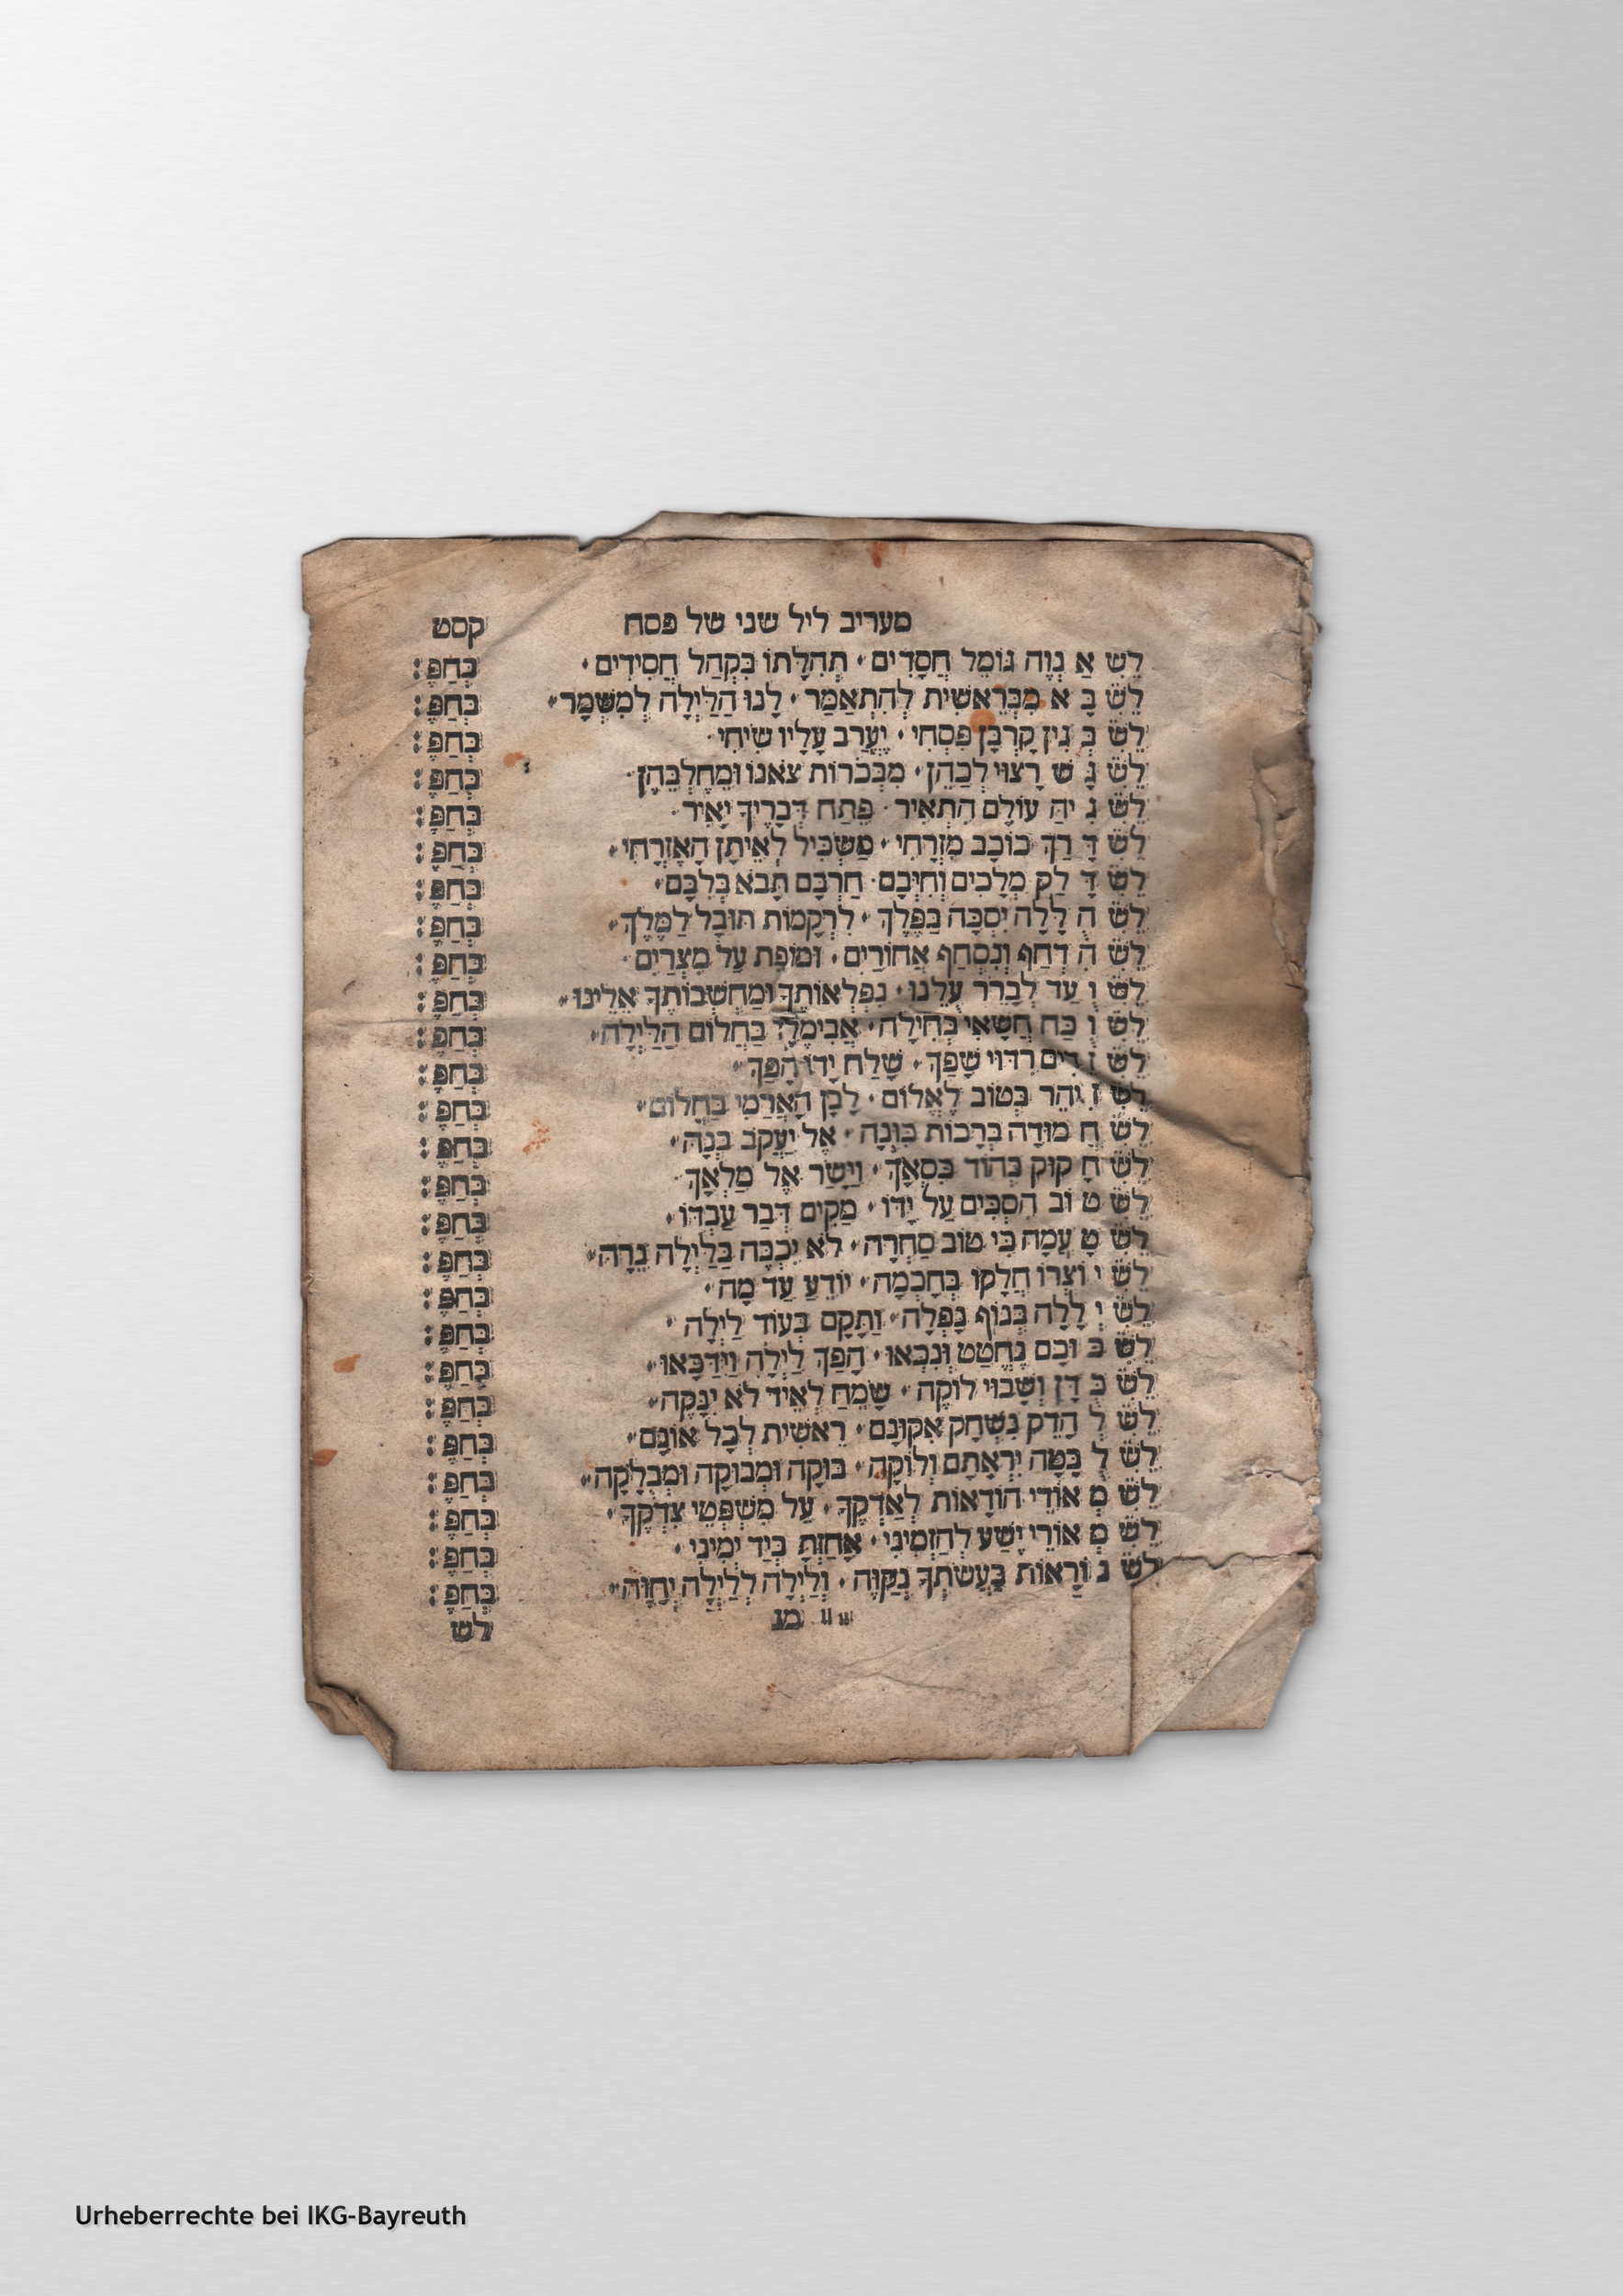 מעריב ליל שני של פסח קסט
לֵשׁ אַ נְוֶה גּוֹמֵל חֲסָדִים · תְּהִלָּתוֹ בִּקְהַל חֲסִידִים · בְּחַפֶּ:
לֵשׁ בָּ א מִבְּרֵאשִׁית לְהִתְאַמַּר · לָנוּ הַלַּיְלָה לְמִשְׁמָר · בְּחַפֶּ:
לֵשׁ בְּ גִין קָרְבָּן פִּסְחִי · יֶעֱרַב עָלָיו שִׂיחִי · בְּחַפֶּ:
לֵשׁ גָּ שׁ רָצוּי לְכַהֵן · מִבְּכֹרוֹת צֹאנוֹ וּמֵחֶלְבֵהֶן · בְּחַפֶּ:
לֵשׁ גִּ יהַּ עוֹלָם הִתְאִיר · פֵּתַח דְּבָרֶיךָ יָאִיר · בְּחַפֶּ:
לֵשׁ דָּ רַךְ כּוֹכָב מִזְרָחִי · מַשְׂכִּיל לְאֵיתָן הָאֶזְרָחִי · בְּחַפֶּ:
לֵשׁ דָּ לַק מְלָכִים וְחִיְּבָם · חַרְבָּם תָּבֹא בְלִבָּם · בְּחַפֶּ:
לֵשׁ הֻ לָּלָה יִסְכָּה בַּפֶּלֶךְ · לִרְקָמוֹת תּוּבַל לַמֶּלֶךְ · בְּחַפֶּ:
לֵשׁ הֻ דְחַף וְנִסְחַף אֲחוֹרַיִם · וּמוֹפֵת עַל מִצְרַיִם · בְּחַפֶּ:
לֵשׁ וַ עַד לְבָרֵר עָלֵנוּ · נִפְלְאוֹתֶיךָ וּמַחְשְׁבוֹתֶיךָ אֵלֵינוּ · בְּחַפֶּ:
לֵשׁ וְ כַח חֲשָׁאִי בְּחִילָה · אֲבִימֶלֶךְ בַּחֲלוֹם הַלַּיְלָה · בְּחַפֶּ:
לֵשׁ זֵ דִים רִדּוּי שָׁפַךְ · שָׁלַח יָדוֹ הָפַךְ · בְּחַפֶּ:
לֵשׁ זִ יהֵר בְּטוֹב לֶאֱלוֹם · לָבָן הָאֲרַמִּי בַּחֲלוֹם · בְּחַפֶּ:
לֵשׁ חֲ מוּדָה בְּרָכוֹת כִּוְּנָה · אֶל יַעֲקֹב בְּנָהּ · בְּחַפֶּ:
לֵשׁ חָ קוּק בְּהוֹד כִּסְאָךְ · וַיָּשַׂר אֶל מַלְאָךְ · בְּחַפֶּ:
לֵשׁ ט וֹב הִסְכִּים עַל יָדוֹ · מֵקִים דְּבַר עַבְדּוֹ · בְּחַפֶּ:
לֵשׁ טָ עֲמָה כִּי טוֹב סַחְרָהּ · לֹא יִכְבֶּה בַלַּיְלָה נֵרָהּ · בְּחַפֶּ:
לֵשׁ י וֹצְרוֹ חֲלָקוֹ בְּחָכְמָה · יוֹדֵעַ עַד מָה · בְּחַפֶּ:
לֵשׁ יְ לָלָה בְּנוֹף נָפְלָה · וַתָּקָם בְּעוֹד לַיְלָה · בְּחַפֶּ:
לֵשׁ כּ וּכָם נֶחֱטַט וְנִכְאוּ · הָפַךְ לַיְלָה וְיִדַּכָּאוּ · בְּחַפֶּ:
לֵשׁ כְּ דָּן וְשָׁבוּי לוּקָה · שָׂמֵחַ לְאֵיד לֹא יִנָּקֶה · בְּחַפֶּ:
לֵשׁ לְ הָדֵק נִשְׁחַק אִקּוּנָם · רֵאשִׁית לְכָל אוֹנָם · בְּחַפֶּ:
לֵשׁ לֻ בְּטָה יִרְאָתָם וְלוּקָה · בּוּקָה וּמְבוּקָה וּמְבֻלָּקָה · בְּחַפֶּ:
לֵשׁ מְ אוֹדִי הוֹדָאוֹת לְאַדְּקֶךָ · עַל מִשְׁפְּטֵי צִדְקֶךָ · בְּחַפֶּ:
לֵשׁ מְ אוֹרֵי יֶשַׁע לְהַזְמִינִי · אָחַזְתָּ בְּיַד יְמִינִי · בְּחַפֶּ:
לֵשׁ נ וֹרָאוֹת בַּעֲשׂתְךָ נְקַוֶּה · וְלַיְלָה לְלַיְלָה יְחַוֶּה · בְּחַפֶּ:
מג לש
Urheberrechte bei IKG-Bayreuth